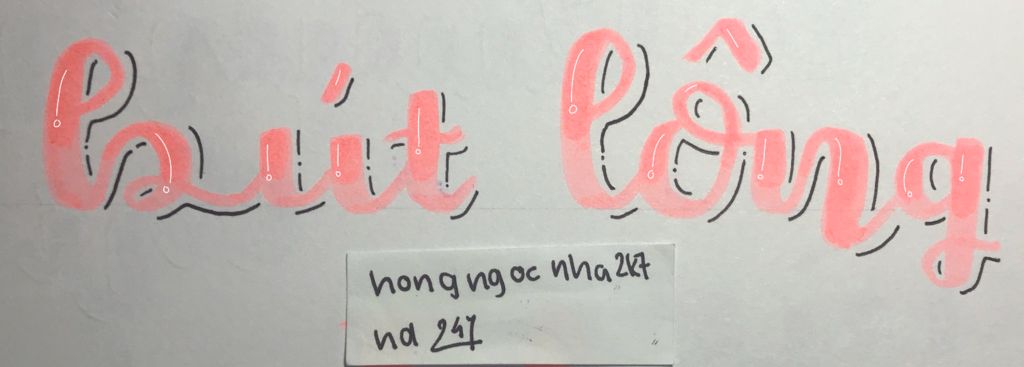 bút lông
hongngoc nha2k7
nd 247